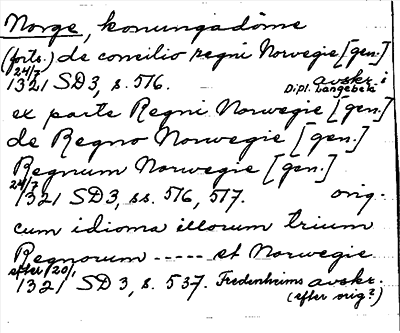 Norge, konungadöme
(forts.) de concilio regni Norwegie [gen.]
24/7 1321 SD 3, s. 516. avskr. i Dipl. Langebeki
ex parte Regni Norwegie [gen.]
de Regno Norwegie [gen.]
Regnum Norwegie [gen.]
24/7 1321 SD 3, ss. 516, 517. orig.
cum idioma illorum trium
Regnorum ----- et Norwegie
efter 20/1 1321 SD 3, s. 537. Fredenheims avskr.
(efter orig?)